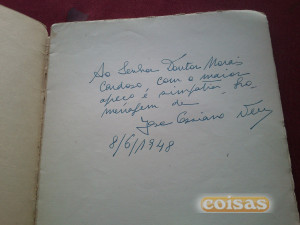 Ao Senhor Doutor Morais
Cardoso com o maior
apreço e simpatia, ho
menagem de
José Cassiano Neves
8/6/1948
coisas